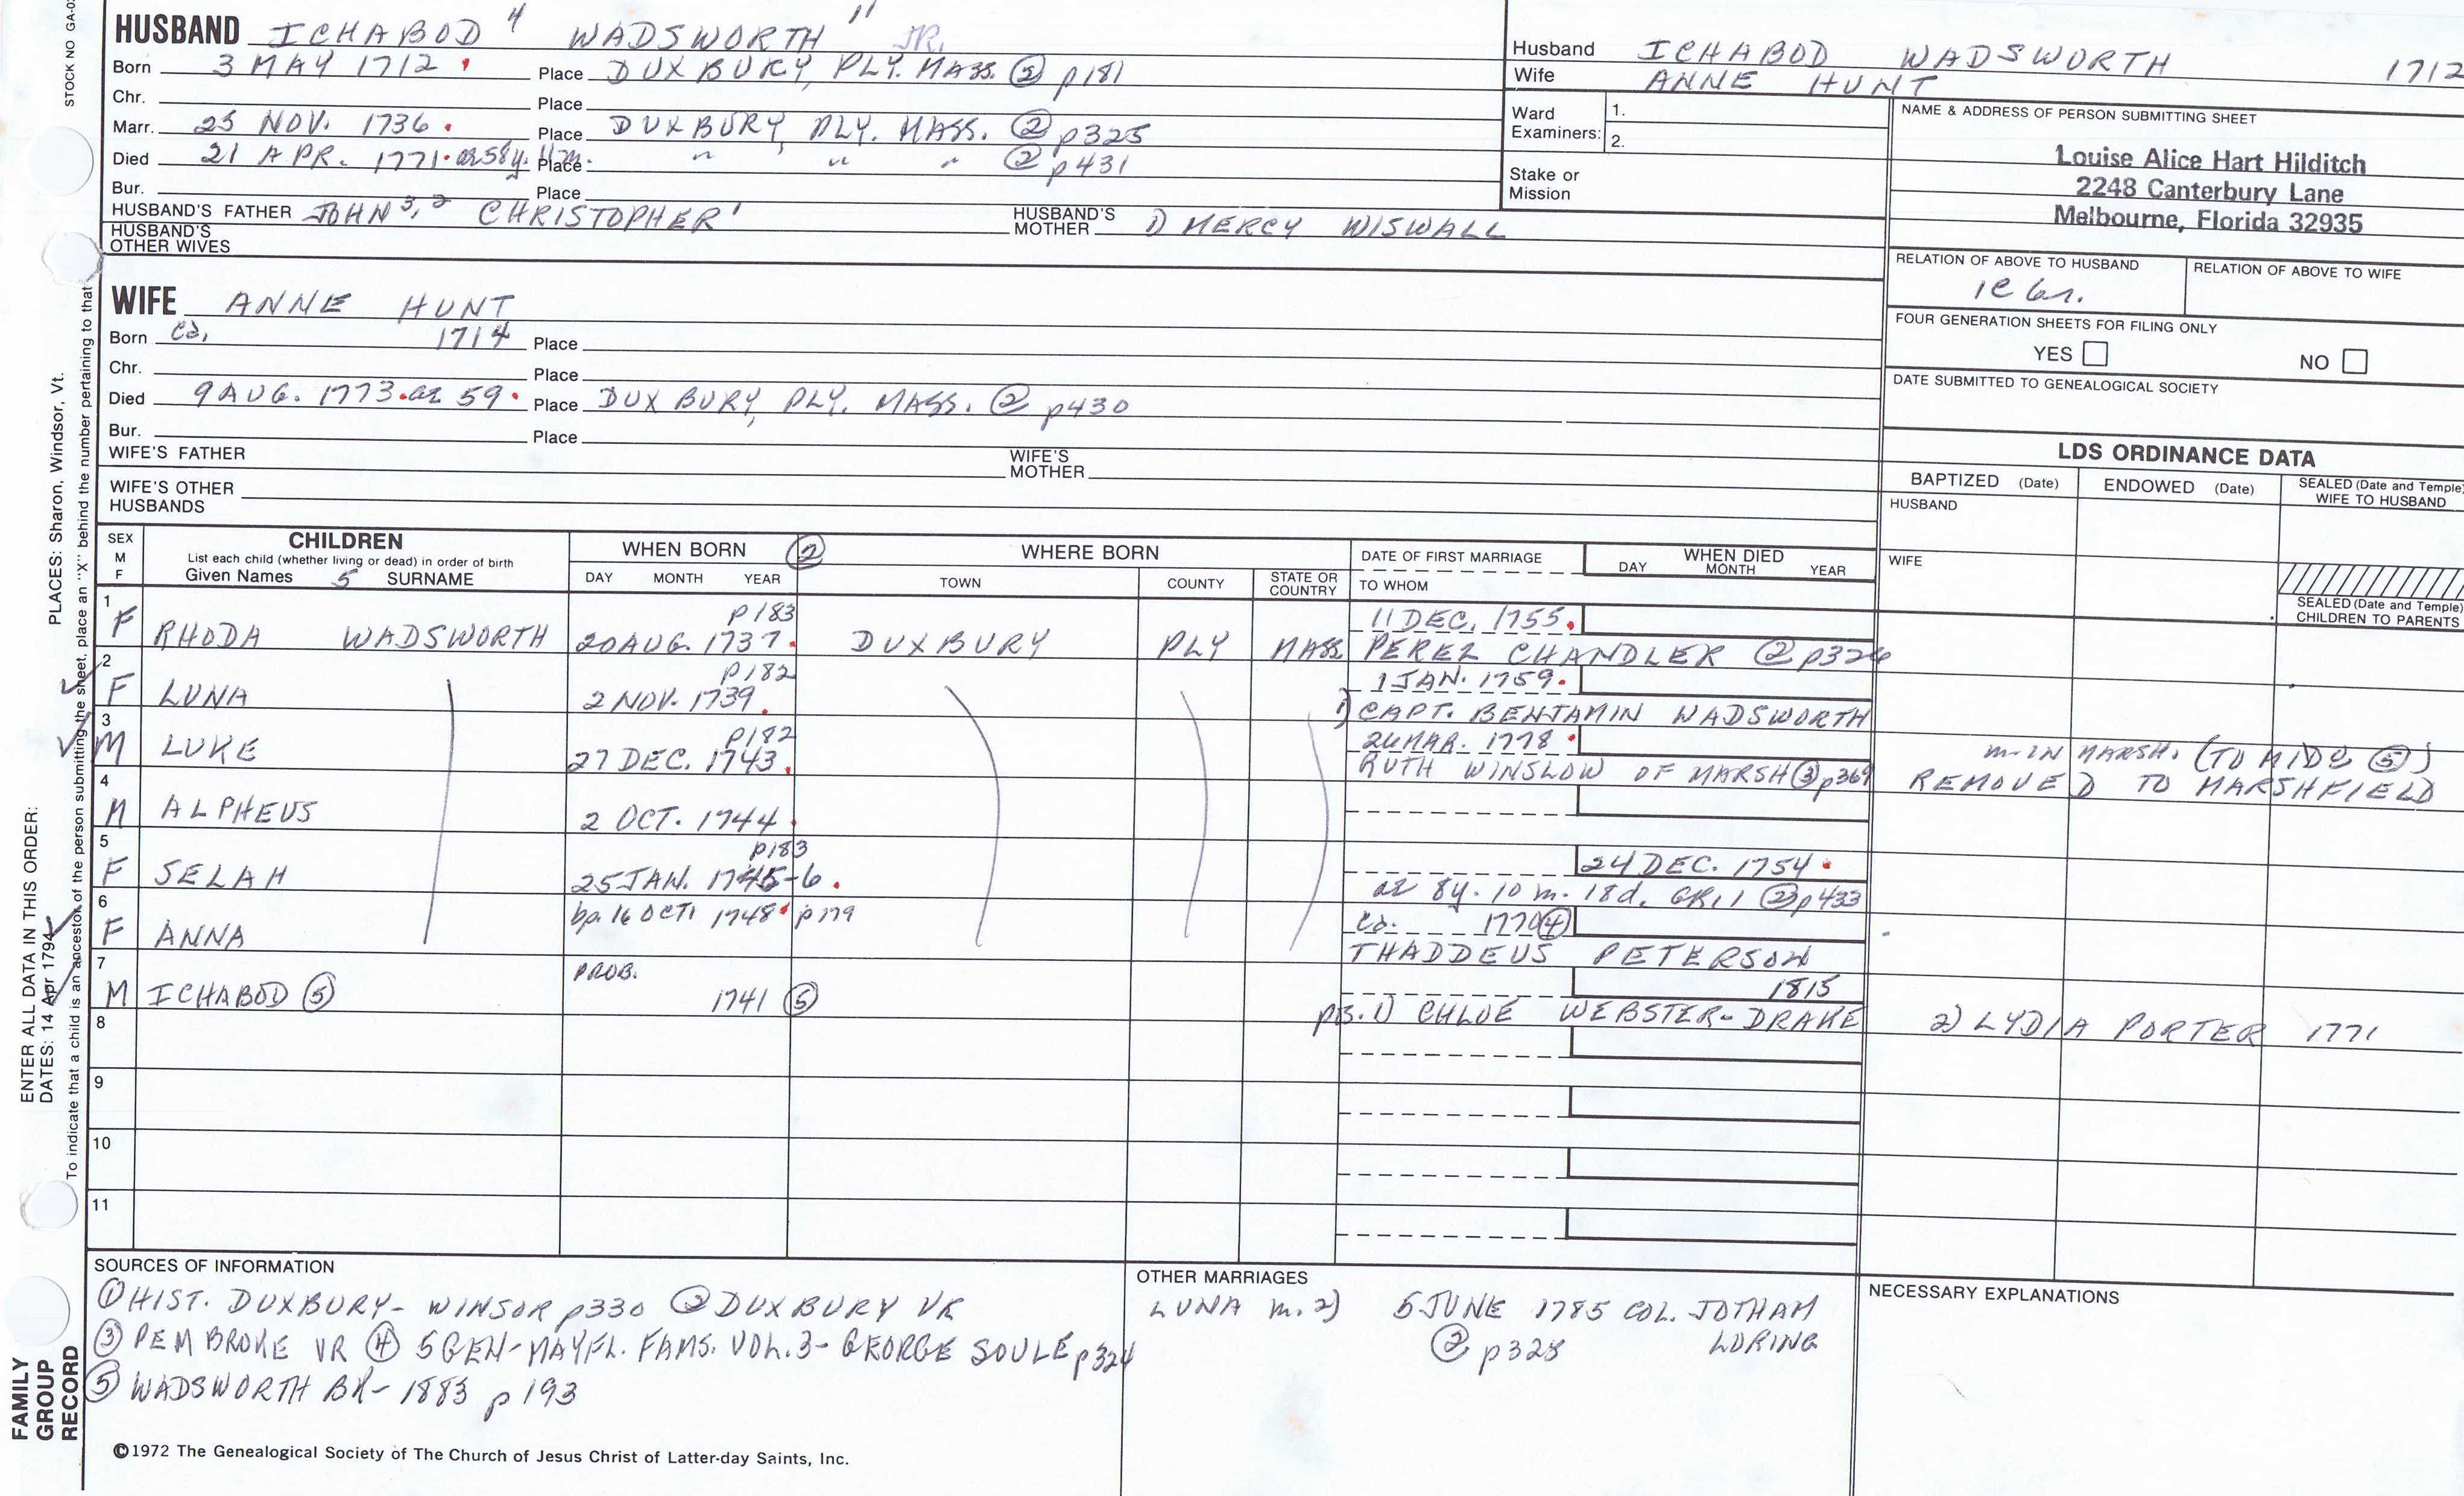 STOCK NO GA-0
HUSBAND ICHABOD 4 WADSWORTH " JR.
Born 3 MAY 1712 Place DUXBURY, PLY. MASS. ② p181
Chr. Place
Marr. 25 NOV. 1736 Place DUXBURY, PLY. MASS. ② p325
Died 21 APR. 1771 ae 58y. 11m. Place " " " ② p431
Bur. Place
HUSBAND'S FATHER JOHN 3, 2 CHRISTOPHER 1 HUSBAND'S MOTHER 1) MERCY WISWALL
HUSBAND'S OTHER WIVES
Husband ICHABOD WADSWORTH 1712
Wife ANNE HUNT
Ward Examiners: 1.
2.
Stake or Mission
NAME & ADDRESS OF PERSON SUBMITTING SHEET
Louise Alice Hart Hilditch
2248 Canterbury Lane
Melbourne, Florida 32935
RELATION OF ABOVE TO HUSBAND RELATION OF ABOVE TO WIFE
FOUR GENERATION SHEETS FOR FILING ONLY
YES NO
DATE SUBMITTED TO GENEALOGICAL SOCIETY
WIFE ANNE HUNT
Born ca. 1714 Place
Chr. Place
Died 9 AUG. 1773 ae 59 Place DUXBURY, PLY. MASS. ② p430
Bur. Place
WIFE'S FATHER WIFE'S MOTHER
WIFE'S OTHER HUSBANDS
LDS ORDINANCE DATA
BAPTIZED (Date) ENDOWED (Date) SEALED (Date and Temple) WIFE TO HUSBAND
HUSBAND
WIFE
SEALED (Date and Temple) CHILDREN TO PARENTS
SEX M F CHILDREN WHEN BORN ② WHERE BORN DATE OF FIRST MARRIAGE WHEN DIED
List each child (whether living or dead) in order of birth
Given Names 5 SURNAME DAY MONTH YEAR TOWN COUNTY STATE OR COUNTRY TO WHOM DAY MONTH YEAR
1 p183 11 DEC. 1755
F RHODA WADSWORTH 20 AUG. 1737 DUXBURY PLY MASS PEREZ CHANDLER ② p326
2 p182 1 JAN. 1759
F LUNA 2 NOV. 1739 1) CAPT. BENJAMIN WADSWORTH
3 p182 26 MAR. 1778 m. IN MARSH. (TO MIDD ⑤)
M LUKE 27 DEC. 1743 RUTH WINSLOW OF MARSH ③ p369 REMOVED TO MARSHFIELD
4
M ALPHEUS 2 OCT. 1744
5 p183 24 DEC. 1754
F SELAH 25 JAN. 1745-6 ae 8y. 10 m. 18d. GR11 ② p433
6 bp. 16 OCT. 1748 p179 ca. 1770 ④
F ANNA THADDEUS PETERSON
7 PROB. 1815
M ICHABOD ⑤ 1741 ⑤ 1) CHLOE WEBSTER-DRAKE 2) LYDIA PORTER 1771
8
9
10
11
SOURCES OF INFORMATION
① HIST. DUXBURY - WINSOR p330 ② DUXBURY VR
③ PEMBROKE VR ④ 5 GEN-MAYFL. FAMS. VOL. 3 - GEORGE SOULE p324
⑤ WADSWORTH BK - 1883 p 193
OTHER MARRIAGES
LUNA m. 2) 5 JUNE 1785 COL. JOTHAM LORING
② p328
NECESSARY EXPLANATIONS
©1972 The Genealogical Society of The Church of Jesus Christ of Latter-day Saints, Inc.
FAMILY GROUP RECORD
ENTER ALL DATA IN THIS ORDER:
DATES: 14 Apr 1794 PLACES: Sharon, Windsor, Vt.
To indicate that a child is an ancestor of the person submitting the sheet, place an "X" behind the number pertaining to that